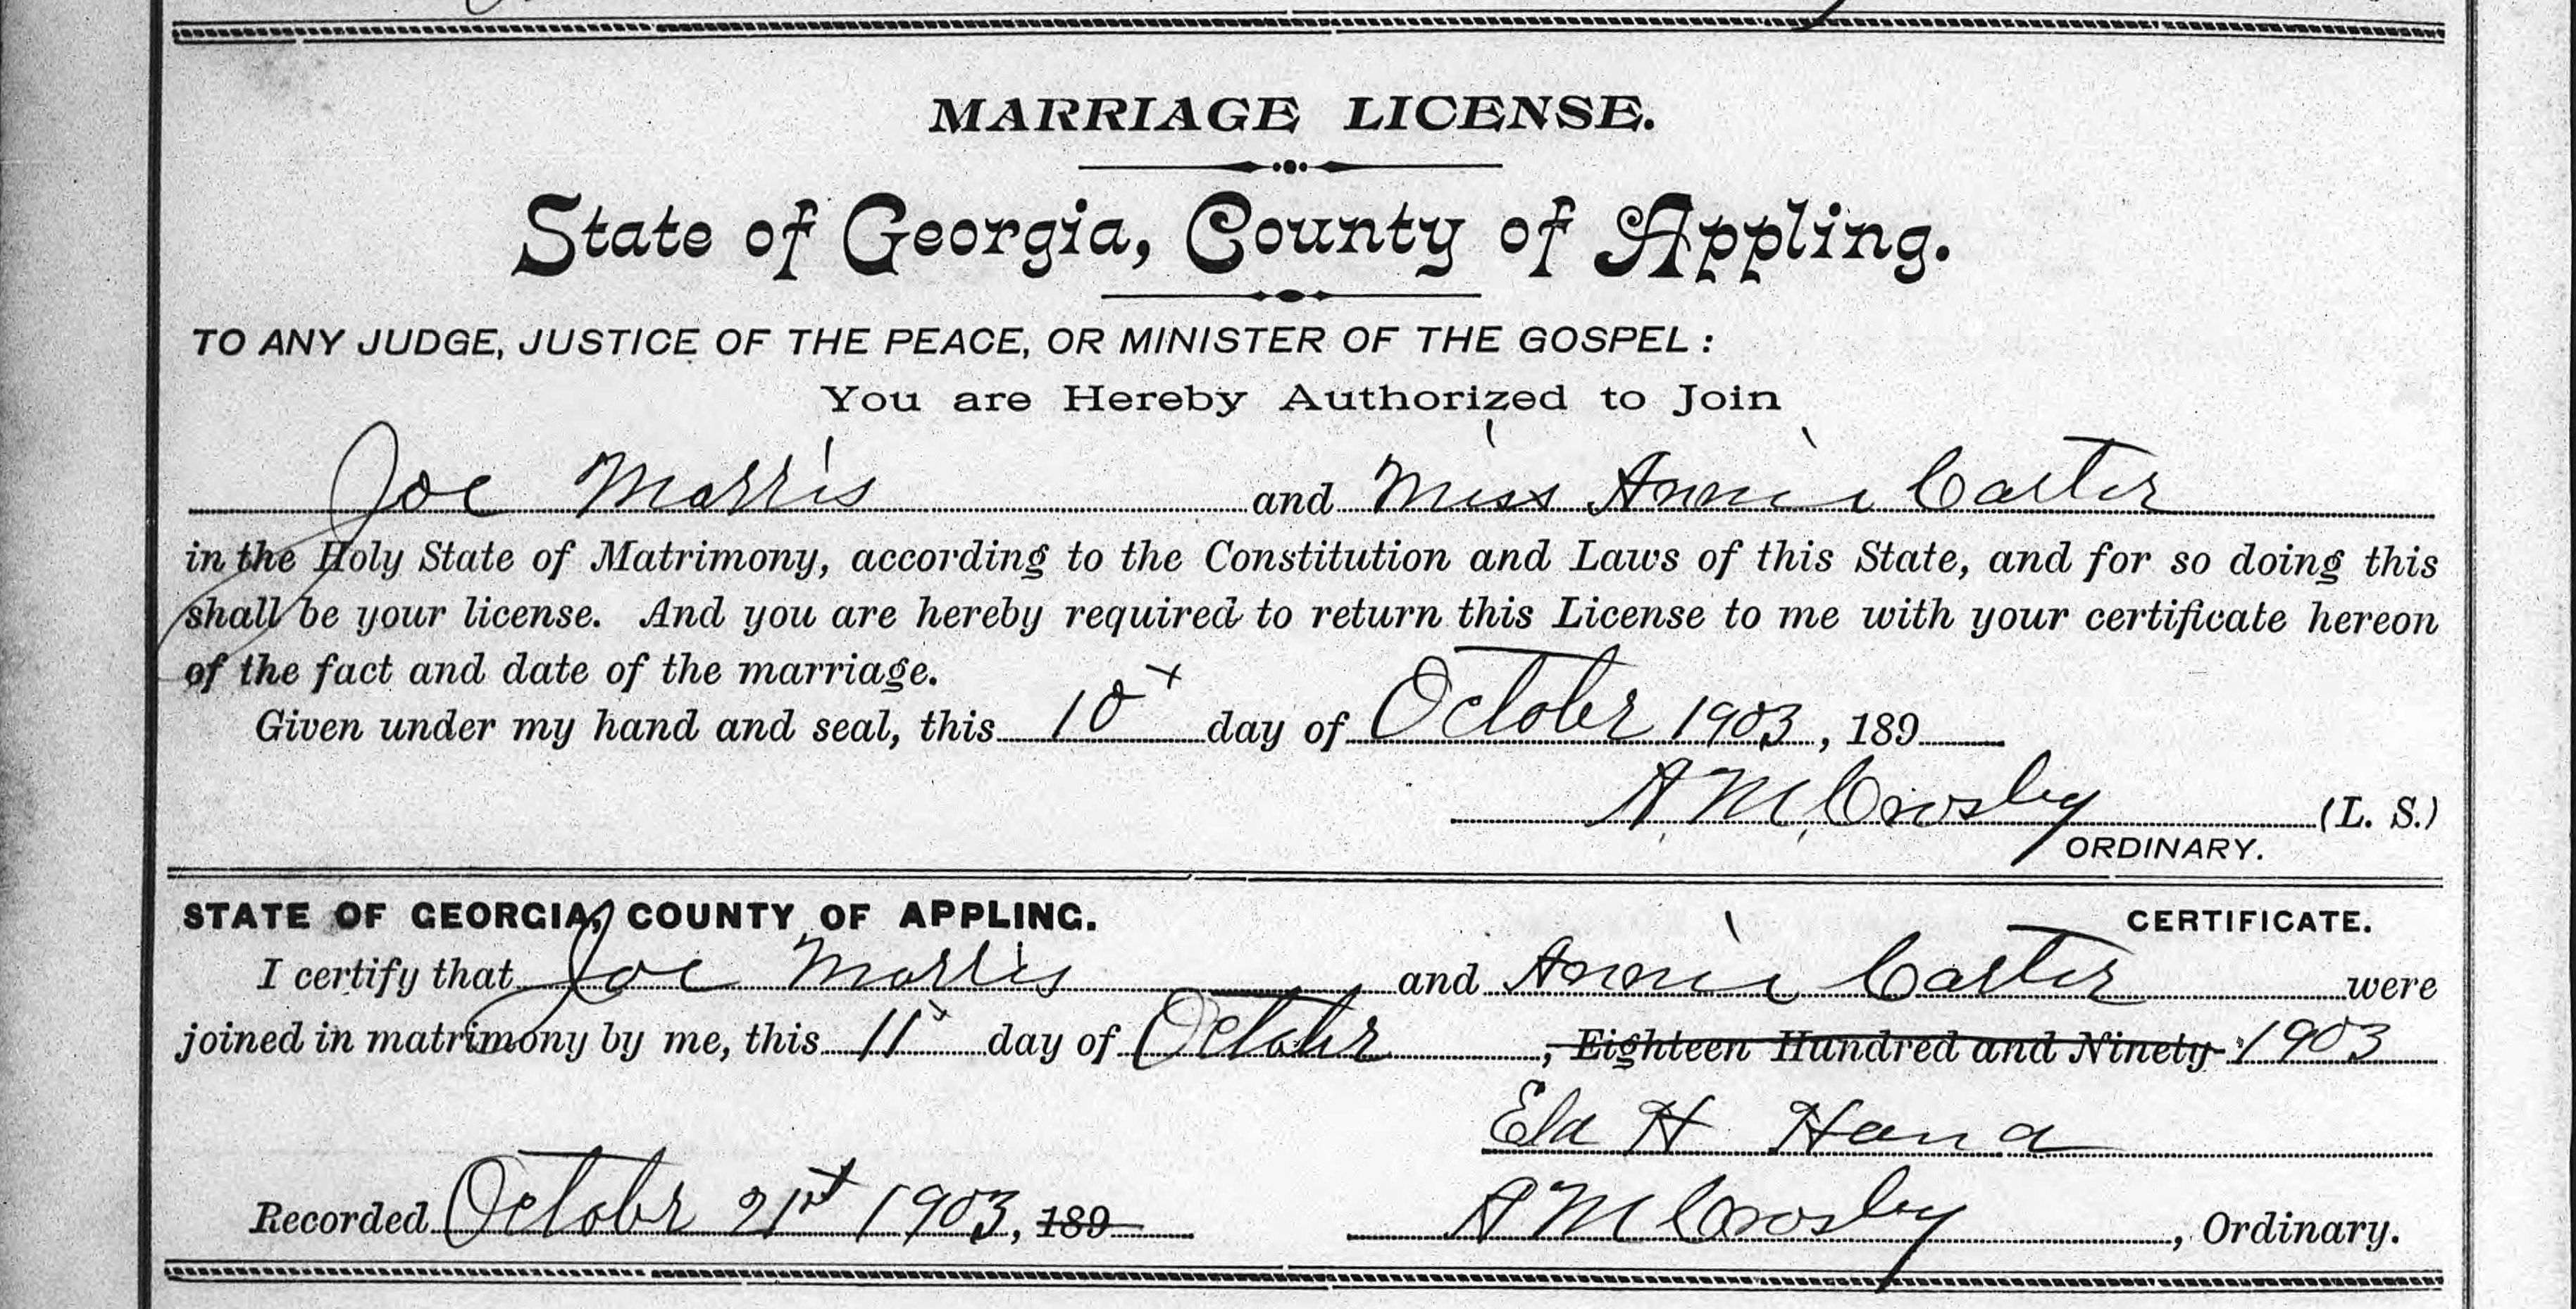 MARRIAGE LICENSE.
State of Georgia, County of Appling.
TO ANY JUDGE, JUSTICE OF THE PEACE, OR MINISTER OF THE GOSPEL:
You are Hereby Authorized to Join
Joe Morris and Miss Annie Carter
in the Holy State of Matrimony, according to the Constitution and Laws of this State, and for so doing this
shall be your license. And you are hereby required to return this License to me with your certificate hereon
of the fact and date of the marriage.
Given under my hand and seal, this 10 day of October 1903, 189
A. M. Crosby (L. S.)
ORDINARY.
STATE OF GEORGIA, COUNTY OF APPLING. CERTIFICATE.
I certify that Joe Morris and Annie Carter were
joined in matrimony by me, this 11 day of October, Eighteen Hundred and Ninety 1903
H
Recorded October 21st 1903, 189 A M Crosby, Ordinary.